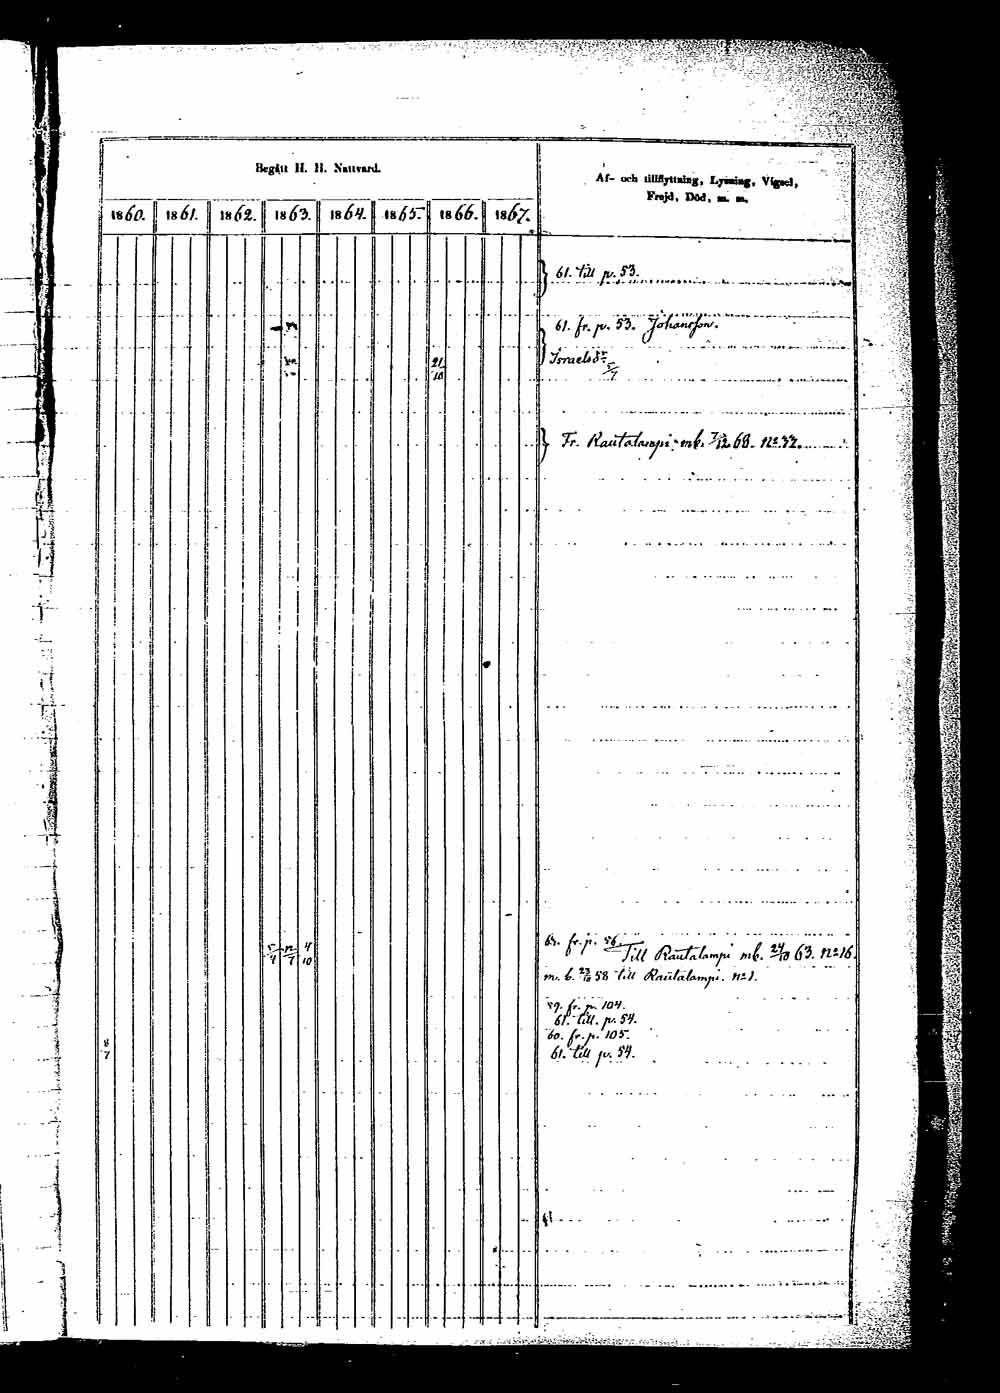 Begått H. H. Nattvard.
Af- och tillflyttning, Lysning, Vigsel,
Frejd, Död, m. m.
1860. 1861. 1862. 1863. 1864. 1865. 1866. 1867.
61. till p. 53.
61. fr. p. 53. Johansson.
Israels 5/7
21/10
Fr. Rautalampi mb. No
63. fr. p. 56.
5/4 12/7 4/10
Till Rautalampi mb. 24/10 63. No 16.
m. b. 23/10 58 till Rautalampi. No 1.
59. fr. p. 104.
61. till. p. 54.
60. fr. p. 105.
8/7
61. till p. 54.